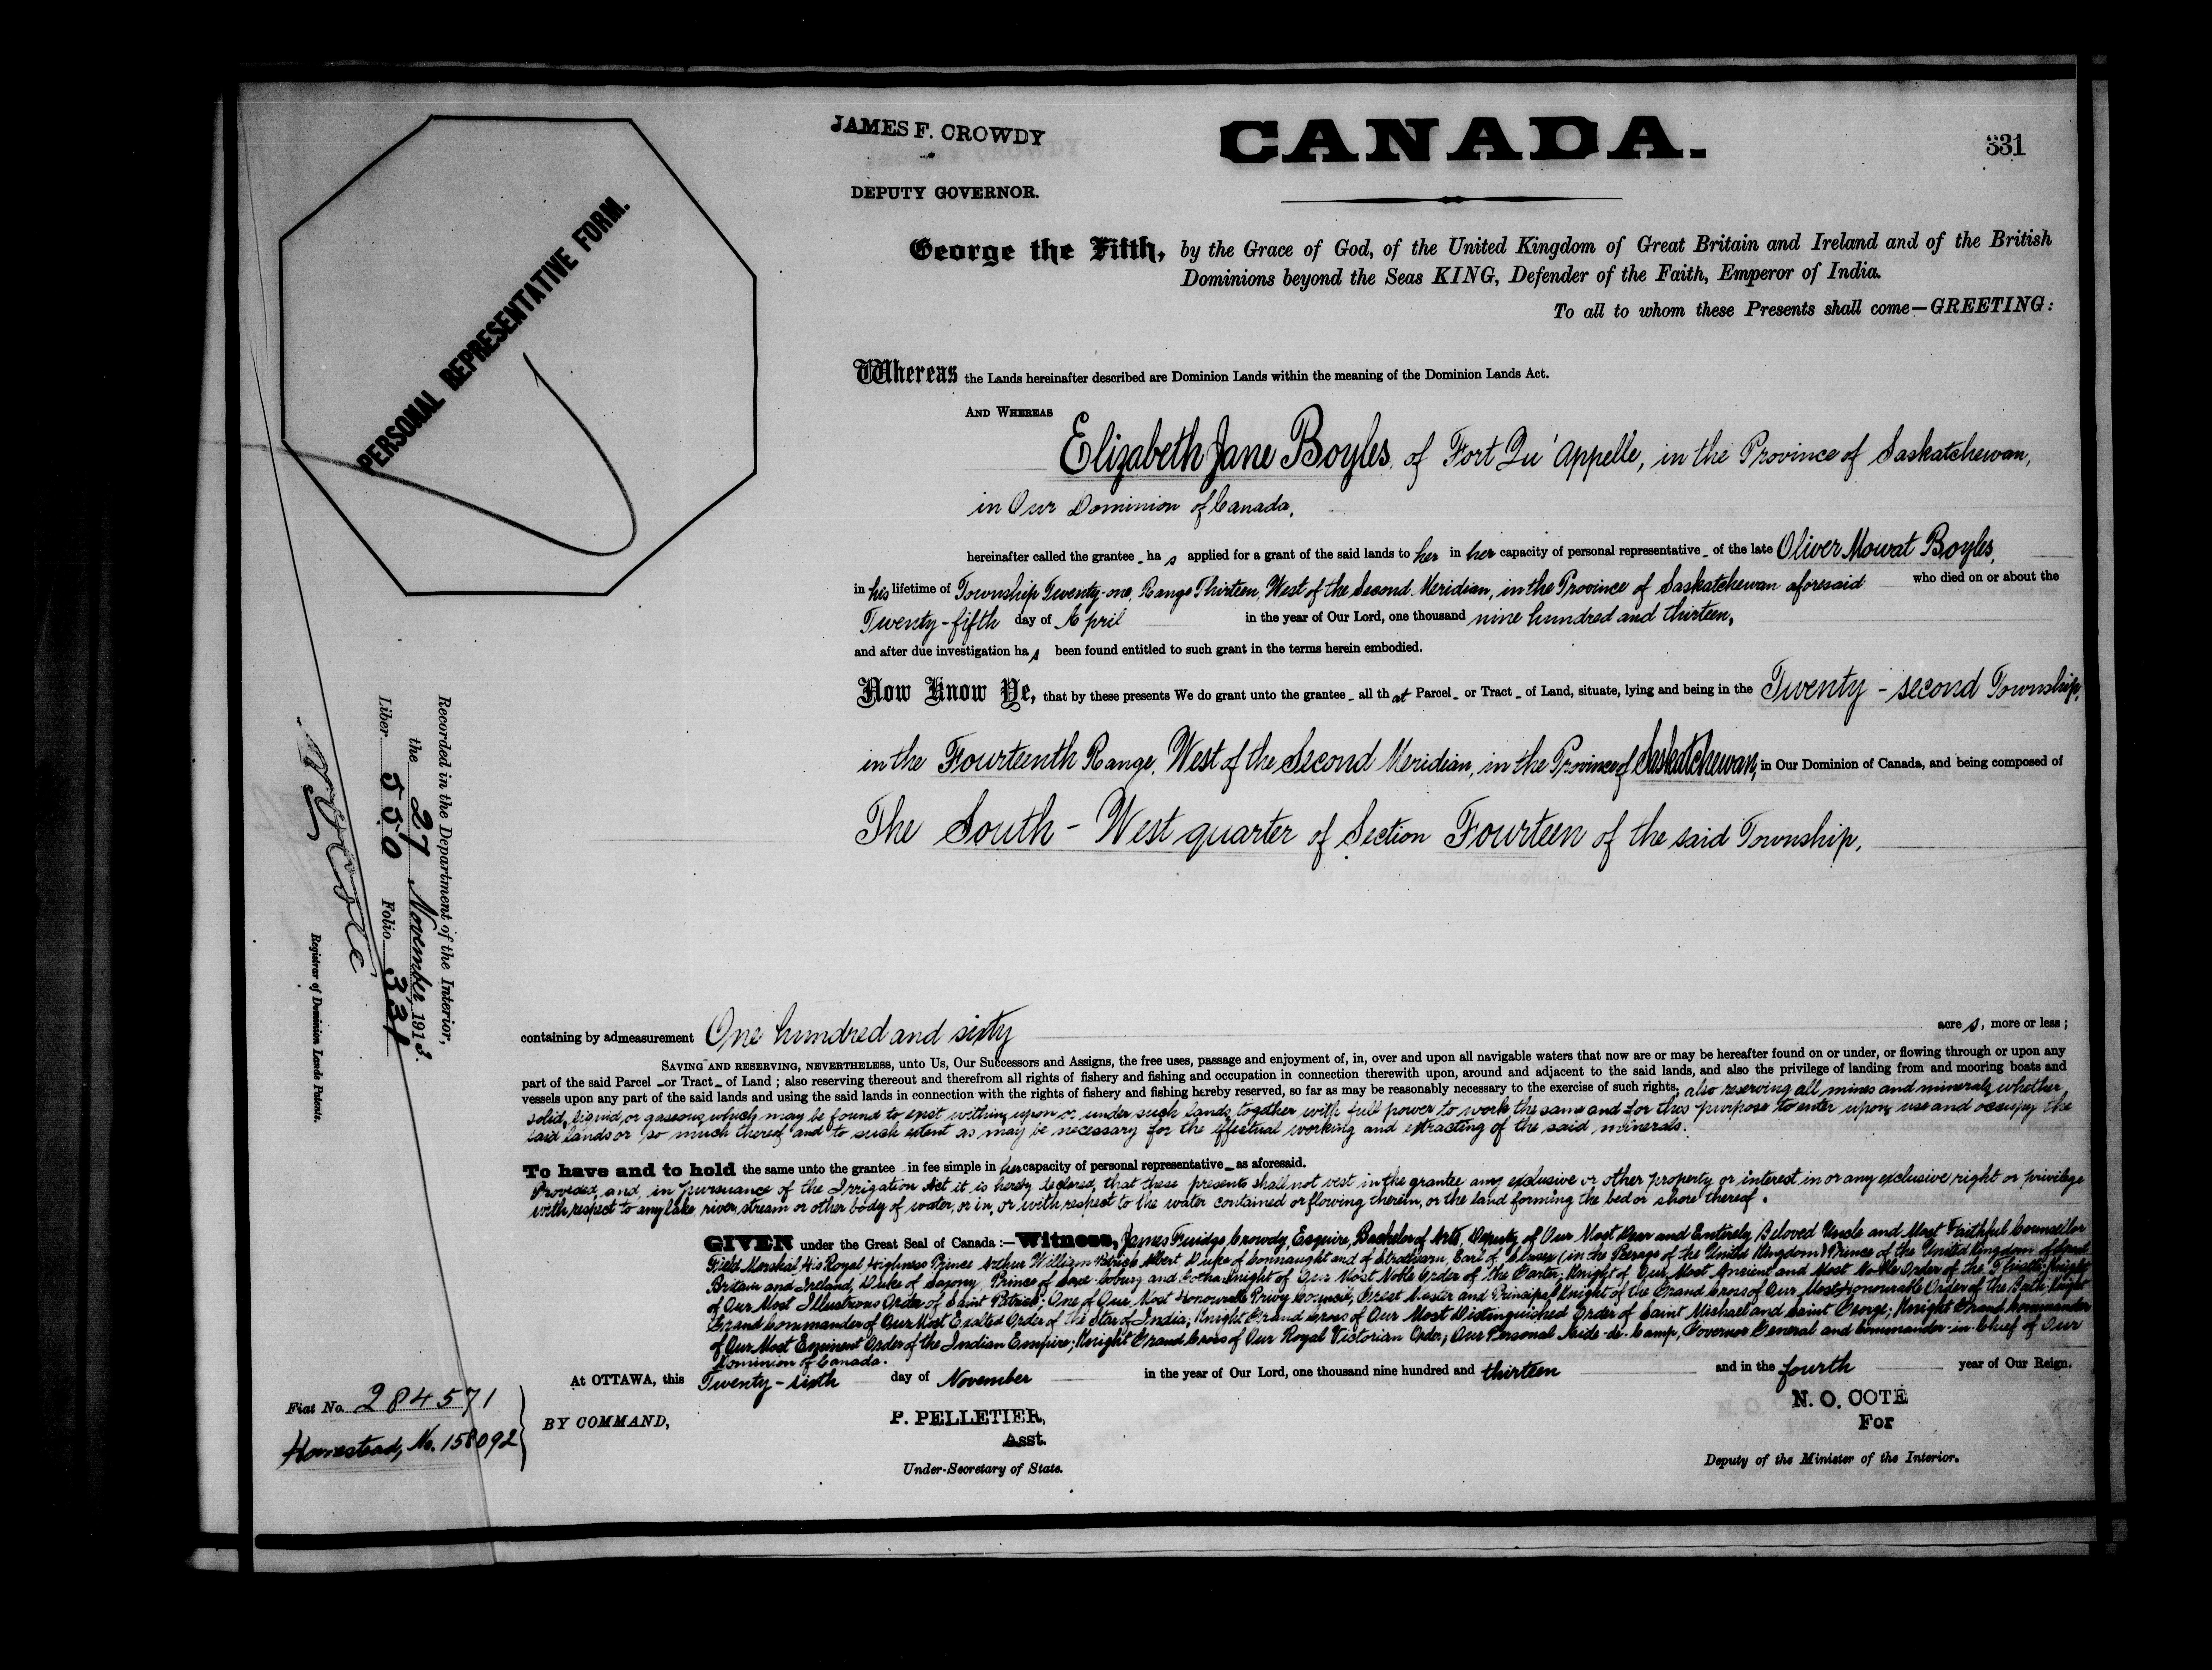 JAMES F. CROWDY
DEPUTY GOVERNOR.
CANADA.
331
PERSONAL REPRESENTATIVE FORM.
George the Fifth, by the Grace of God, of the United Kingdom of Great Britain and Ireland and of the British
Dominions beyond the Seas KING, Defender of the Faith, Emperor of India.
To all to whom these Presents shall come—GREETING:
Whereas the Lands hereinafter described are Dominion Lands within the meaning of the Dominion Lands Act.
AND WHEREAS
Elizabeth Jane Boyles, of Fort Qu'Appelle, in the Province of Saskatchewan,
in Our Dominion of Canada,
hereinafter called the grantee_ has applied for a grant of the said lands to her in her capacity of personal representative_ of the late Oliver Mowat Boyles,
in his lifetime of Township Twenty-one, Range Thirteen, West of the Second Meridian, in the Province of Saskatchewan aforesaid who died on or about the
Twenty-fifth day of April in the year of Our Lord, one thousand nine hundred and thirteen,
and after due investigation has been found entitled to such grant in the terms herein embodied.
Now Know Ye, that by these presents We do grant unto the grantee_ all that Parcel_ or Tract_ of Land, situate, lying and being in the Twenty-second Township,
in the Fourteenth Range, West of the Second Meridian, in the Province of Saskatchewan, in Our Dominion of Canada, and being composed of
The South-West quarter of Section Fourteen of the said Township,
containing by admeasurement One hundred and sixty acres, more or less;
SAVING AND RESERVING, NEVERTHELESS, unto Us, Our Successors and Assigns, the free uses, passage and enjoyment of, in, over and upon all navigable waters that now are or may be hereafter found on or under, or flowing through or upon any
part of the said Parcel_ or Tract_ of Land; also reserving thereout and therefrom all rights of fishery and fishing and occupation in connection therewith upon, around and adjacent to the said lands, and also the privilege of landing from and mooring boats and
vessels upon any part of the said lands and using the said lands in connection with the rights of fishery and fishing hereby reserved, so far as may be reasonably necessary to the exercise of such rights; also reserving all mines and minerals whether
solid, liquid, or gaseous, which may be found to exist within, upon or under such lands, together with full power to work the same and for this purpose to enter upon, use and occupy the
said lands or so much thereof and to such extent as may be necessary for the effectual working and extracting of the said minerals.
To have and to hold the same unto the grantee_ in fee simple in her capacity of personal representative_ as aforesaid.
Provided, and, in pursuance of the Irrigation Act it is hereby declared, that these presents shall not vest in the grantee any exclusive or other property or interest in or any exclusive right or privilege
with respect to any lake, river, stream or other body of water, or in, or with respect to the water contained or flowing therein, or the land forming the bed or shore thereof.
GIVEN under the Great Seal of Canada:—Witness, James Crowdy, Esquire, Bachelor of Arts, Deputy of Our Most Dear and Entirely Beloved Uncle and Most Faithful Counsellor
Field Marshal His Royal Highness Prince Arthur William Patrick Albert Duke of Connaught and of Strathearn, Earl of Sussex (in the Peerage of the United Kingdom) Prince of the United Kingdom of Great
Britain and Ireland, Duke of Saxony, Prince of Saxe-Coburg and Gotha; Knight of Our Most Noble Order of the Garter; Knight of Our Most Ancient and Most Noble Order of the Thistle; Knight
of Our Most Illustrious Order of Saint Patrick; One of Our Most Honourable Privy Council; Great Master and Principal Knight of the Grand Cross of Our Most Honourable Order of the Bath; Knight
Grand Commander of Our Most Exalted Order of the Star of India; Knight Grand Cross of Our Most Distinguished Order of Saint Michael and Saint George; Knight Grand Commander
of Our Most Eminent Order of the Indian Empire; Knight Grand Cross of Our Royal Victorian Order; Our Personal Aide-de-Camp, Governor General and Commander-in-Chief of Our
Dominion of Canada.
At OTTAWA, this Twenty-sixth day of November in the year of Our Lord, one thousand nine hundred and thirteen and in the fourth year of Our Reign.
BY COMMAND,
P. PELLETIER,
Asst.
Under-Secretary of State.
N. O. COTÉ
For
Deputy of the Minister of the Interior.
Fiat No. 284571
Homestead, No. 158092
Recorded in the Department of the Interior,
the 27 November, 1913.
Liber 550 Folio 331
N O Coté
Registrar of Dominion Lands Patents.